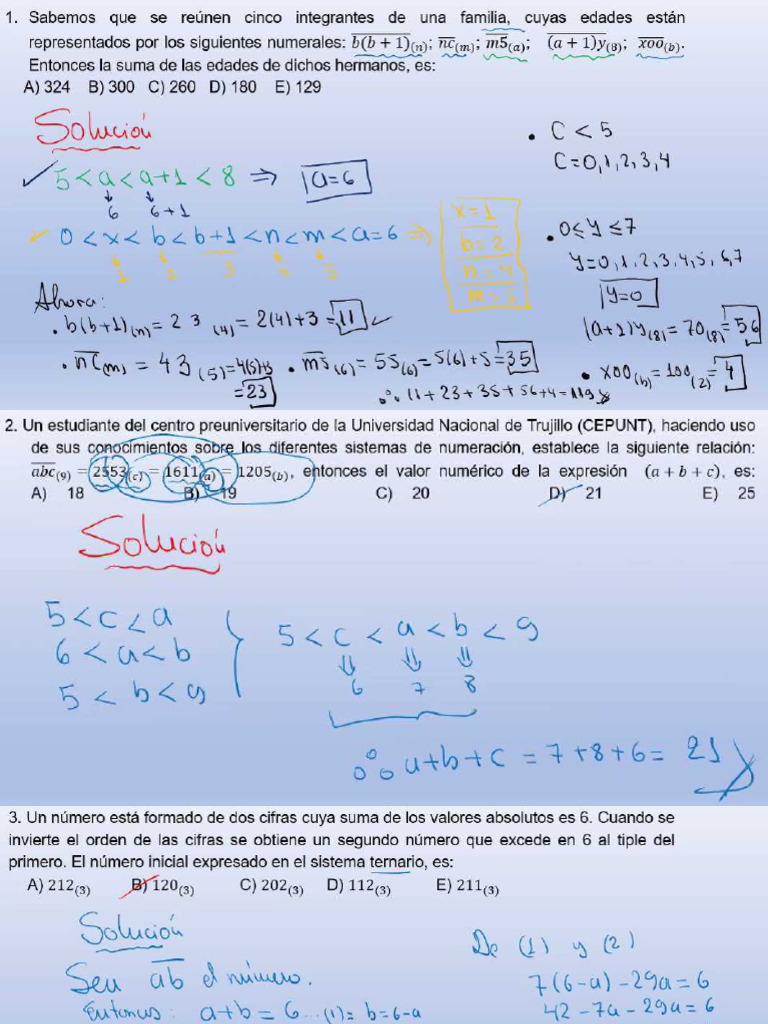 1. Sabemos que se reúnen cinco integrantes de una familia, cuyas edades están
representados por los siguientes numerales: b(b + 1)(n); nc(m); m5(a); (a + 1)y(8); xoo(b).
Entonces la suma de las edades de dichos hermanos, es:
A) 324 B) 300 C) 260 D) 180 E) 129
Solución
• C < 5
C=0,1,2,3,4
5<a<a+1<8 ⇒ a=6
6 6+1
0<x<b<b+1<n<m<a=6 ⇒
1 2 3 4 5
x=1
b=2
n=4
m=5
• 0≤y≤7
y=0,1,2,3,4,5,6,7
y=0
(a+1)y(8)=70(8)=56
Ahora:
• b(b+1)(n)=23(4)=2(4)+3=11
• nc(m)=43(5)=4(5)+3=23
• m5(6)=55(6)=5(6)+5=35
• xoo(b)=100(2)=4
∴ 11+23+35+56+4=119
2. Un estudiante del centro preuniversitario de la Universidad Nacional de Trujillo (CEPUNT), haciendo uso
de sus conocimientos sobre los diferentes sistemas de numeración, establece la siguiente relación:
abc(9) = 2553(c) = 1611(a) = 1205(b), entonces el valor numérico de la expresión (a + b + c), es:
A) 18 B) 19 C) 20 D) 21 E) 25
Solución
5<c<a
6<a<b
5<b<9
5<c<a<b<9
6 7 8
∴ a+b+c = 7+8+6 = 21
3. Un número está formado de dos cifras cuya suma de los valores absolutos es 6. Cuando se
invierte el orden de las cifras se obtiene un segundo número que excede en 6 al tiple del
primero. El número inicial expresado en el sistema ternario, es:
A) 212(3) B) 120(3) C) 202(3) D) 112(3) E) 211(3)
Solución
Sea ab el número.
Entonces: a+b=6...(1)⇒ b=6-a
De (1) y (2)
7(6-a)-29a=6
42-7a-29a=6